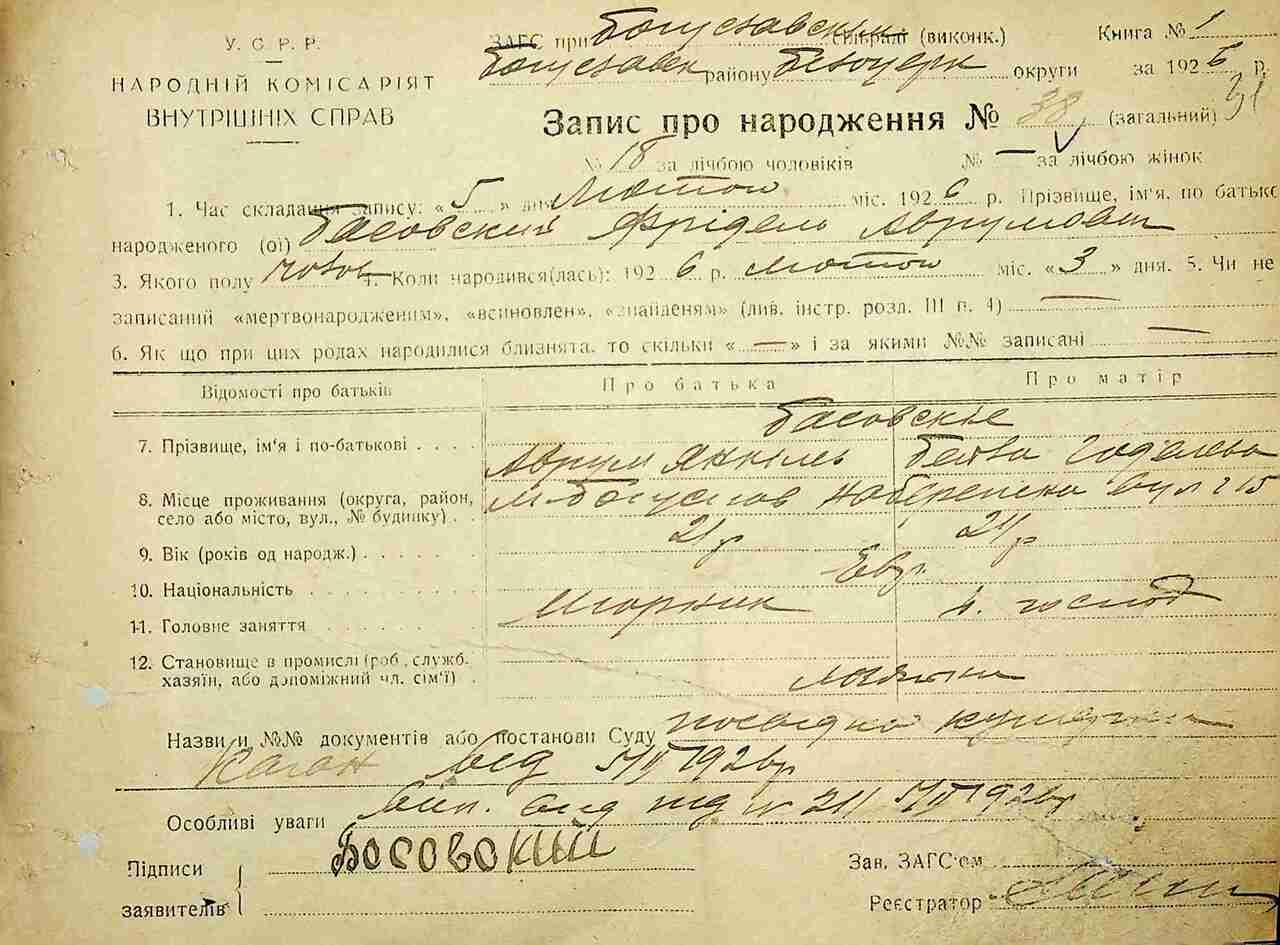 У. С. Р. Р.
НАРОДНІЙ КОМІСАРІЯТ
ВНУТРІШНІХ СПРАВ
ЗАГС при Богуславський (виконк.) Книга № 1
Богуславськ району Білоцерк округи за 1926 р.
Запис про народження № 38 (загальний) 31
№ 18 за лічбою чоловіків № — за лічбою жінок
1. Час складання запису: «5» дня Лютого міс. 1926 р. Прізвище, ім'я, по батько
народженого (ої) Басовский Фрідель Аврумович
3. Якого полу чолов 4. Коли народився(лась): 1926 р. Лютого міс. «3» дня. 5. Чи не
записаний «мертвонародженим», «всиновлен», «знайденям» (див. інстр. розд. III п. 4) —
6. Як що при цих родах народилися близнята, то скільки «—» і за якими №№ записані —
Відомості про батьків Про батька Про матір
Басовские
7. Прізвище, ім'я і по-батькові Аврум Янкель Бейва Годалева
8. Місце проживання (округа, район, село або місто, вул., № будинку) м. Богуслав вул 215
9. Вік (років од народж.) 21 р 21 р
10. Національність Евр.
11. Головне заняття д. господ
12. Становище в промислі (роб., служб. хазяїн, або допоміжний чл. сім'ї)
Назви и №№ документів або постанови Суду посвідка
Каган від 5/II 1926 р
Особливі уваги Вип. від № 211 5/II 1926 р
Підписи Босовский
заявителів
Зав. ЗАГС'ом
Реєстратор